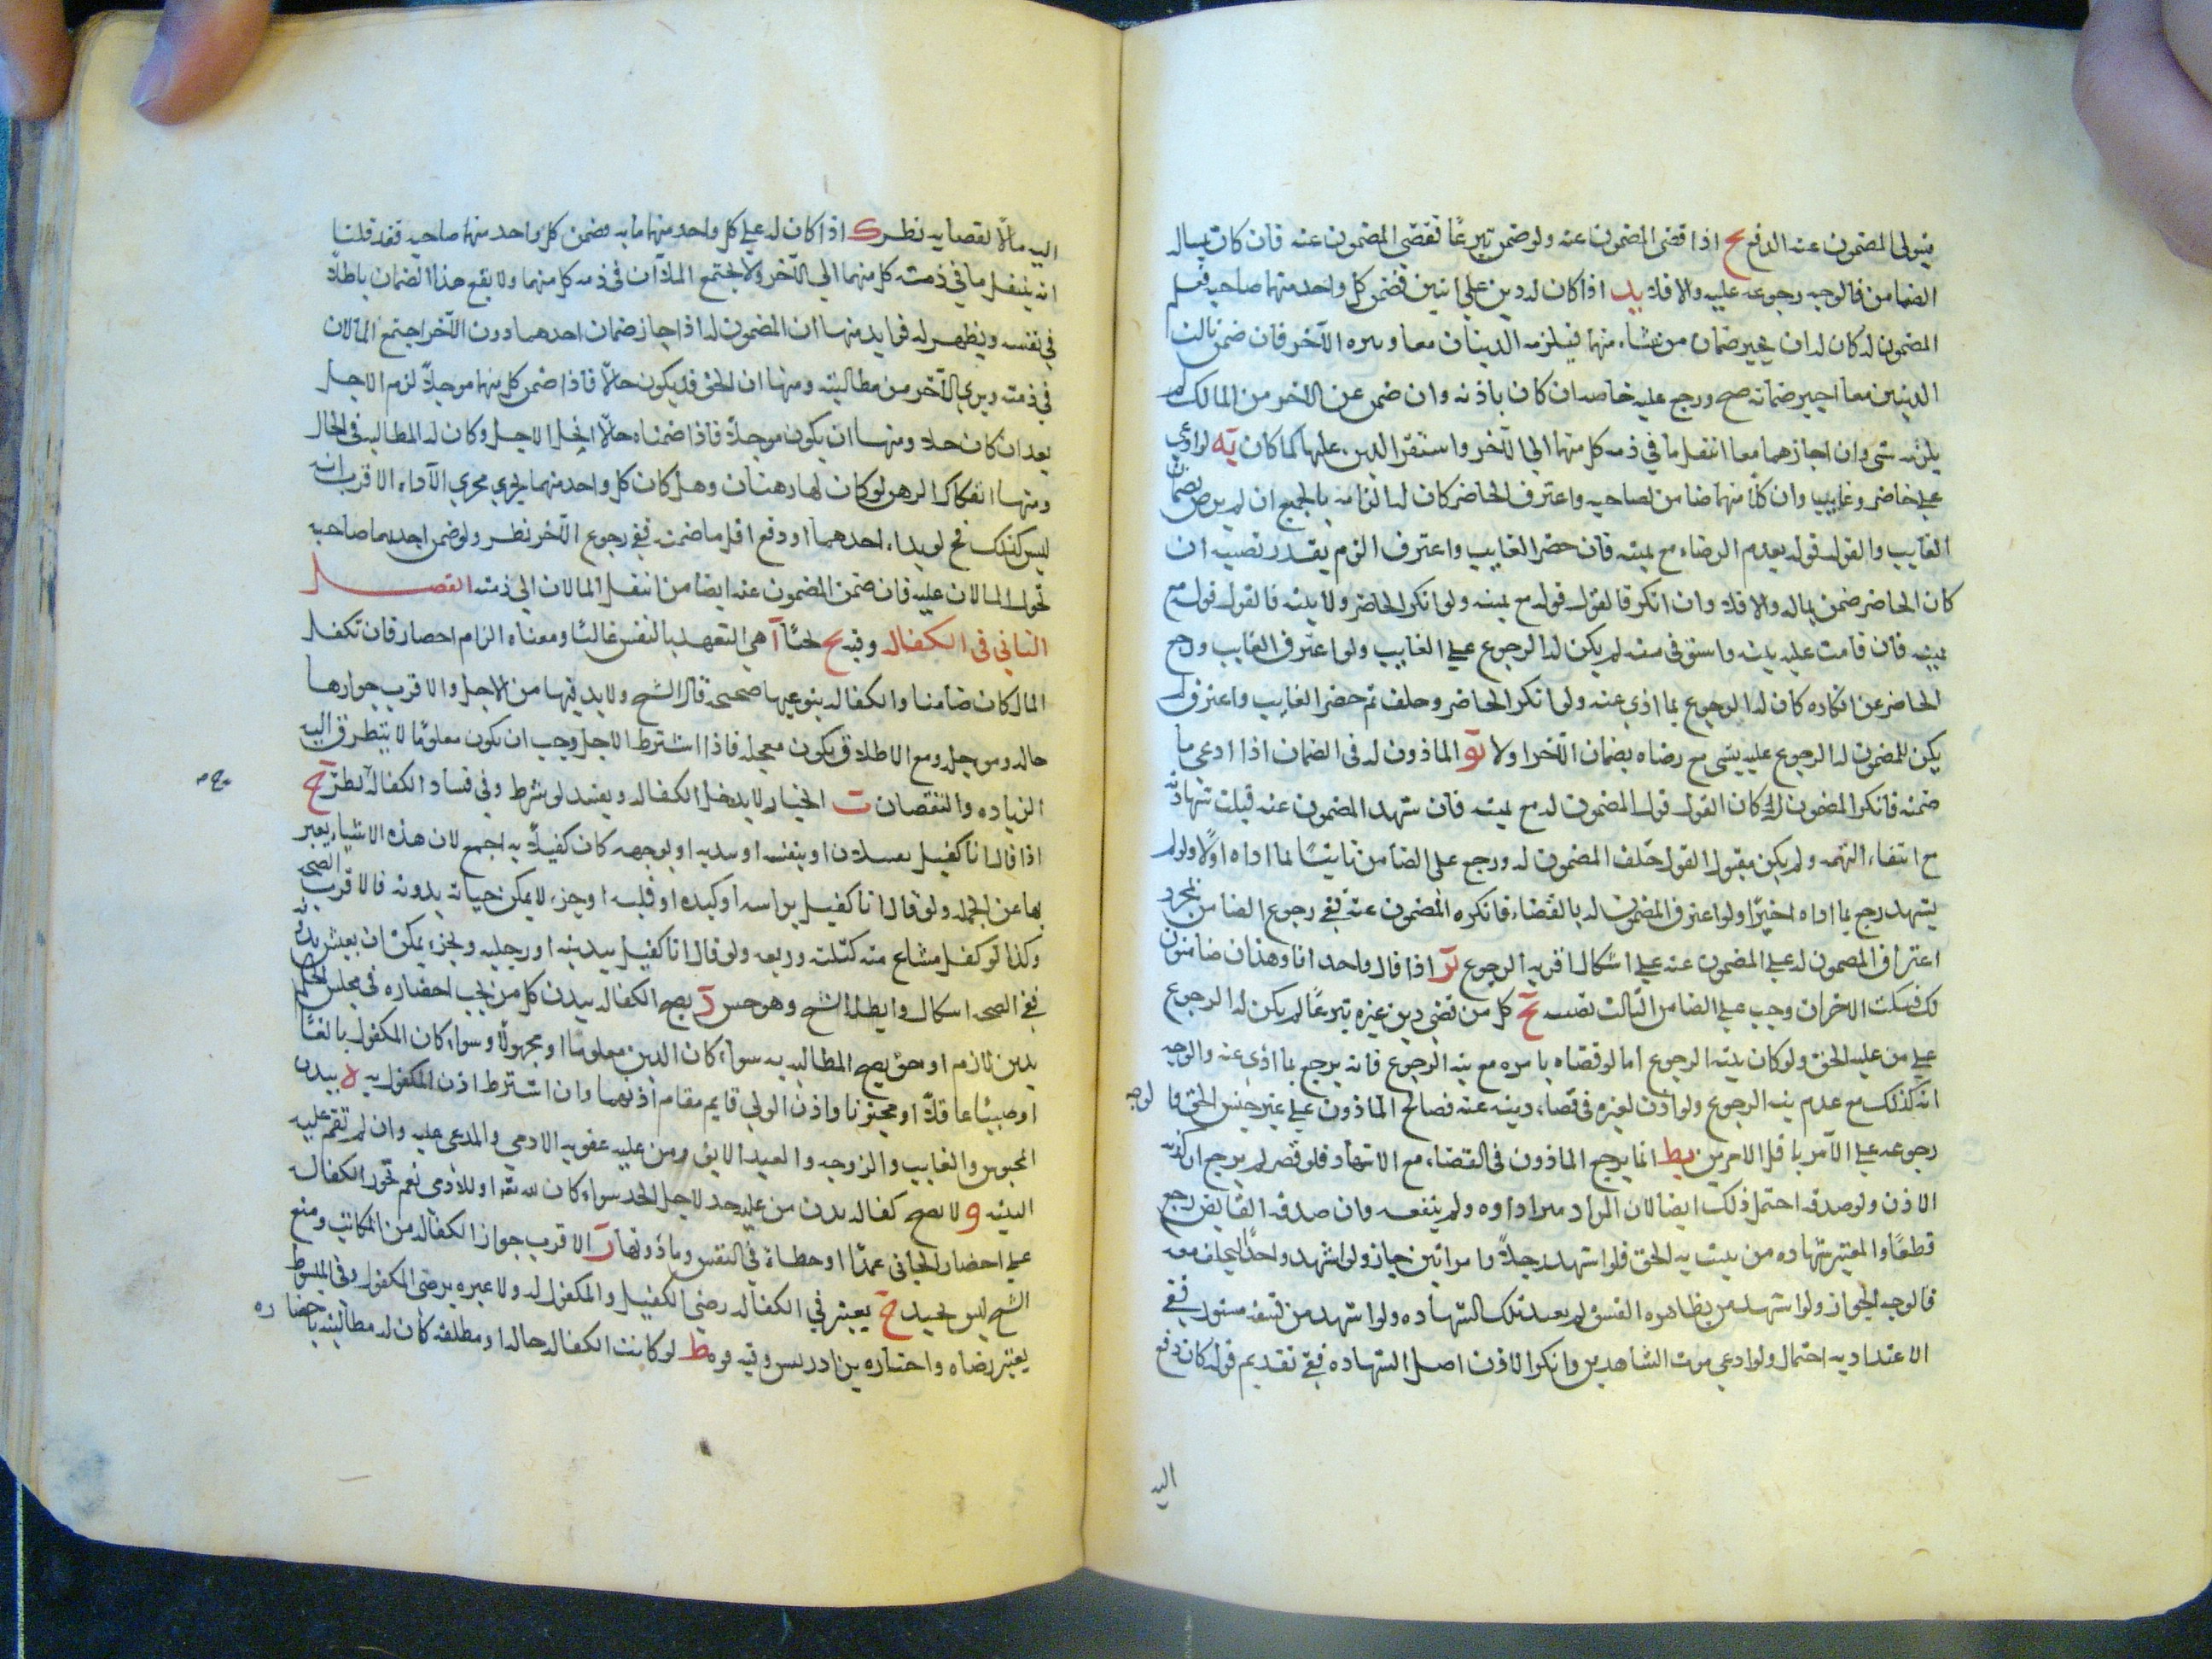 فيتولى المضمون عنه الدفع يج اذا قضى المضمون عنه ولو ضمن تبرعا فقضى المضمون عنه فان كان بسال
الضامن فالوجه رجوعه عليه والا فلا يد اذا كان له دين على اثنين فضمن كل واحد منهما صاحبه فعلم
المضمون له كان له ان يجيز ضمان من شاء منهما فيلزمه الدينان معا ويبره الآخر فان ضمن ثالث
الدينين معا اجيز ضمانه صح ورجع عليه خاصه ان كان باذنه وان ضمن عن الاخر من المالك لم
يلزمه شى وان اجازهما معا انتقل ما في ذمه كل منهما الى الآخر واستقر الدين عليهما كما كان يه لو ادعى
على حاضر وغايب وان كلا منهما ضامن لصاحبه واعترف الحاضر كان له الزامه بالجميع ان لم يرض بضمان
الغايب والقول قوله بعدم الرضاء مع يمينه فان حضر الغايب واعترف الزم بقدر نصيبه ان
كان الحاضر ضمن بماله والا فلا وان انكر فالقول قوله مع يمينه ولو انكر الحاضر ولا بينه فالقول قوله مع
يمينه فان قامت عليه بينه واستوفى منه لم يكن له الرجوع على الغايب ولو اعترف الغايب ورجع
الحاضر عن انكاره كان له الرجوع بما ادى عنه ولو انكر الحاضر وحلف ثم حضر الغايب واعترف لم
يكن للمضمون له الرجوع عليه بشى مع رضاه بضمان الآخر اولا يو الماذون له فى الضمان اذا ادى ما
ضمنه فانكر المضمون له كان القول قول المضمون له مع يمينه فان شهد المضمون عنه قبلت شهادته
مع انتفاء التهمه ولم يكن مقبول القول حلف المضمون له ورجع على الضامن ثانيا لما اداه اولا ولو لم
يشهد رجع بما اداه اخيرا ولو اعترف المضمون له بالقضاء فانكره المضمون عنه ففي رجوع الضامن بمجرد
اعتراف المضمون له على المضمون عنه على اشكال اقربه الرجوع يز اذا قال واحد انا وهذان ضامنون
لك فسكت الاخران وجب على الضامن الثالث نصيبه يح كل من قضى دين غيره تبرعا لم يكن له الرجوع
على من عليه الحق ولو كان بنيه الرجوع اما لو قضاه بامره مع نيه الرجوع فانه يرجع بما ادى عنه والوجه
انه كذلك مع عدم نيه الرجوع ولو اذن لغيره فى قضاء دينه عنه فصالح الماذون على غير جنس الحق فا لوجه
رجوعه على الآمر باقل الامرين يط انما يرجع الماذون فى القضاء مع الاشهاد فلو قصر لم يرجع ان كذبه
الاذن ولو صدقه احتمل ذلك ايضا لان المراد مبرا اداوه ولم ينفعه وان صدقه القابض رجع
قطعا والمعتبر شهاده من يثبت به الحق فلو اشهد رجلا وامراتين جاز ولو اشهد واحدا ليحلف معه
فالوجه الجواز ولو اشهد من ظاهره الفسق لم يعتد بتلك الشهاده ولو اشهد من فسقه مستور ففي
الاعتداد به احتمال ولو ادعى موت الشاهدين وانكر الاذن اصل الشهاده ففى تقديم قوله كان دفع
اليه
اليه مالا لقضايه نظر ك اذا كان له على كل واحد منهما مايه فضمن كل واحد منهما صاحبه فقد قلنا
انه ينتقل ما في ذمته كل منهما الى الآخر ولا يجتمع المالان فى ذمه كل منهما ولا يقع هذا الضمان باطلا
في نفسه ويظهر له فوايد منها ان المضمون له اذا اجاز ضمان احدهما دون الآخر اجتمع المالان
في ذمته وبرى الآخر من مطالبته ومنها ان الحق قد يكون حالا فاذا ضمن كل منهما موجلا لزم الاجل
بعد ان كان حلا ومنها ان يكون موجلا فاذا ضمناه حالا انحل الاجل وكان له المطالبه فى الحال
ومنها انفكاك الرهن لو كان لهما رهنان وهل كان كل واحد منهما يجري مجرى الآداء الاقرب انه
ليس كذلك فح لو بدا احدهما او دفع اقل ما ضمنه ففى رجوع الآخر نظر ولو ضمن احدهما صاحبه
تحول المالان عليه فان ضمن المضمون عنه ايضا من انتقل المالان الى ذمته الفصل
الثاني فى الكفاله وفيه يح بحثا آ هي التعهد بالنفس غالبا ومعناه الزام احضار فان تكفل
المال كان ضامنا والكفاله بنوعيها صحيحه قال الشيخ ولا بد فيها من الاجل والاقرب جوازها
حاله وموجله ومع الاطلاق يكون معجله فاذا اشترط الاجل وجب ان يكون معلوما لا يتطرق اليه
الزياده والنقصان ب الخيار لا يدخل الكفاله ويفسد لو شرط وفى فساد الكفاله نظر ج
اذا قال انا كفيل بفلان او بنفسه او ببدنه او بوجهه كان كفيلا به اجمع لان هذه الاشياء يعبر
بها عن الجمله ولو قال انا كفيل براسه او كبده او قلبه او جزء لا يمكن حياته بدونه فالاقرب الصحه
وكذا لو كفل مشاع منه كثلثه وربعه ولو قال انا كفيل بيدينه او رجليه وبجزء يمكن ان يعيش بدونه
ففي الصحه اشكال وابطله الشيخ وهو حسن د يصح الكفاله ببدن كل من يجب احضاره فى مجلس الحكم
بدين لازم او حق يصح المطالبه به سواء كان الدين معلوما او مجهولا وسواء كان المكفول بالغا
او صبيا عاقلا او مجنونا واذن الولي قايم مقام اذنهما وان اشترط اذن المكفول به ه ببدن
المحبوس والغايب والزوجه والعبد الابق ومن عليه عقوبه الادمي والمدعى عليه وان لم تقم عليه
البينه و لا يصح كفاله بدن من عليه حد لاجل الحد سواء كان لله تعه او للادمي نعم تجوز الكفاله
على احضار الجانى عمدا او خطاء في النفس وما دونها ز الاقرب جواز الكفاله من المكاتب ومنع
الشيخ ليس بجيد ح يعتبر في الكفاله رضى الكفيل والمكفول له ولا عبره برضى المكفول وفى المبسوط
يعتبر رضاه واختاره بن ادريس وفيه قوه ط لو كانت الكفاله حاله او مطلقه كان له مطالبته باحضاره